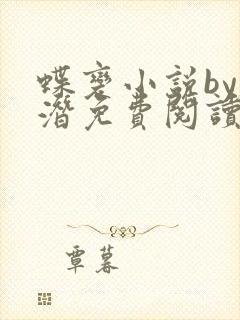 蝶宠小说by
潜免费阅读
覃暮